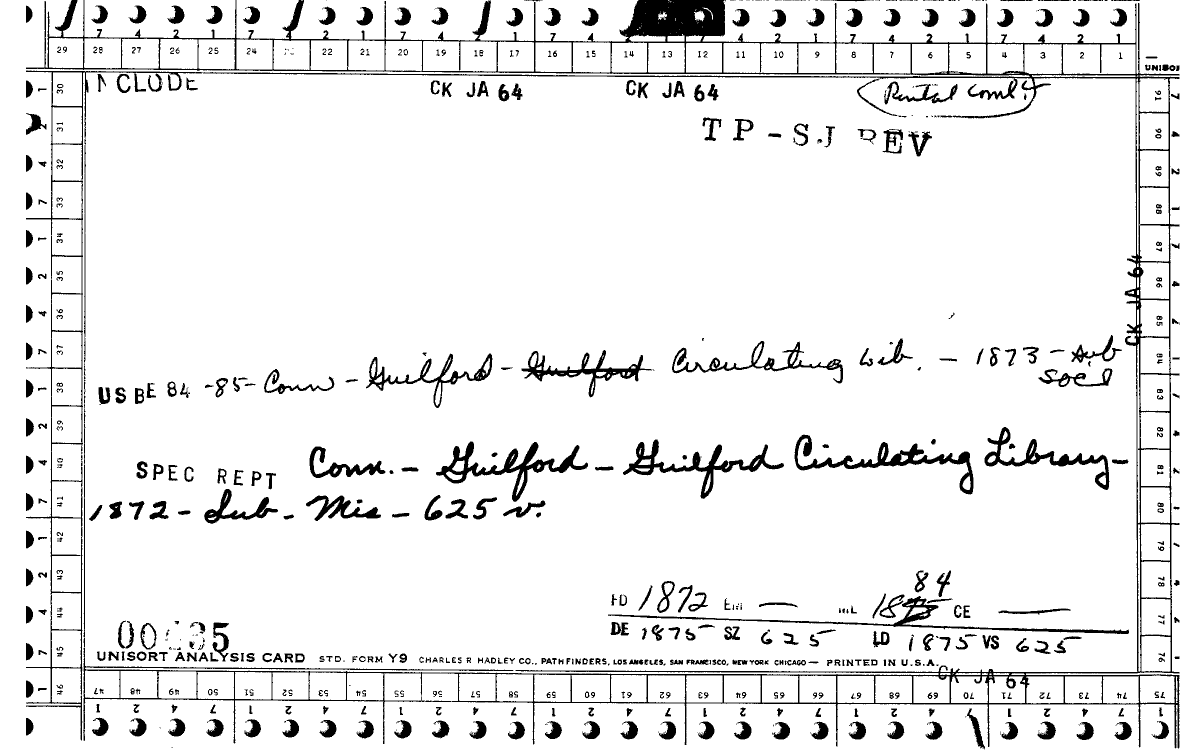 7 4 2 1 7 4 2 1 7 4 2 1 7 4 2 1 7 4 2 1 7 4 2 1
29 28 27 26 25 24 22 21 20 19 18 17 16 15 14 13 12 11 10 9 8 7 6 5 4 3 2 1
UNISOR
INCLUDE CK JA 64 CK JA 64 Rental Coml?
TP-SJ REV
CK JA 64
US BE 84-85- Conn - Guilford - Guilford Circulating Lib. - 1873 - Sub
Soc'l
SPEC REPT Conn. - Guilford - Guilford Circulating Library -
1872 - Sub - Mis - 625 v.
84
FD 1872 EM — ML 1875 CE —
DE 1875 SZ 625 LD 1875 VS 625
UNISORT ANALYSIS CARD STD. FORM Y9 CHARLES R HADLEY CO., PATHFINDERS, LOS ANGELES, SAN FRANCISCO, NEW YORK CHICAGO — PRINTED IN U.S.A.
CK JA 64
30 31 32 33 34 35 36 37 38 39 40 41 42 43 44 45 46
91 90 89 88 87 86 85 84 83 82 81 80 79 78 77 76 75
47 48 49 50 51 52 53 54 55 56 57 58 59 60 61 62 63 64 65 66 67 68 69 70 71 72 73 74